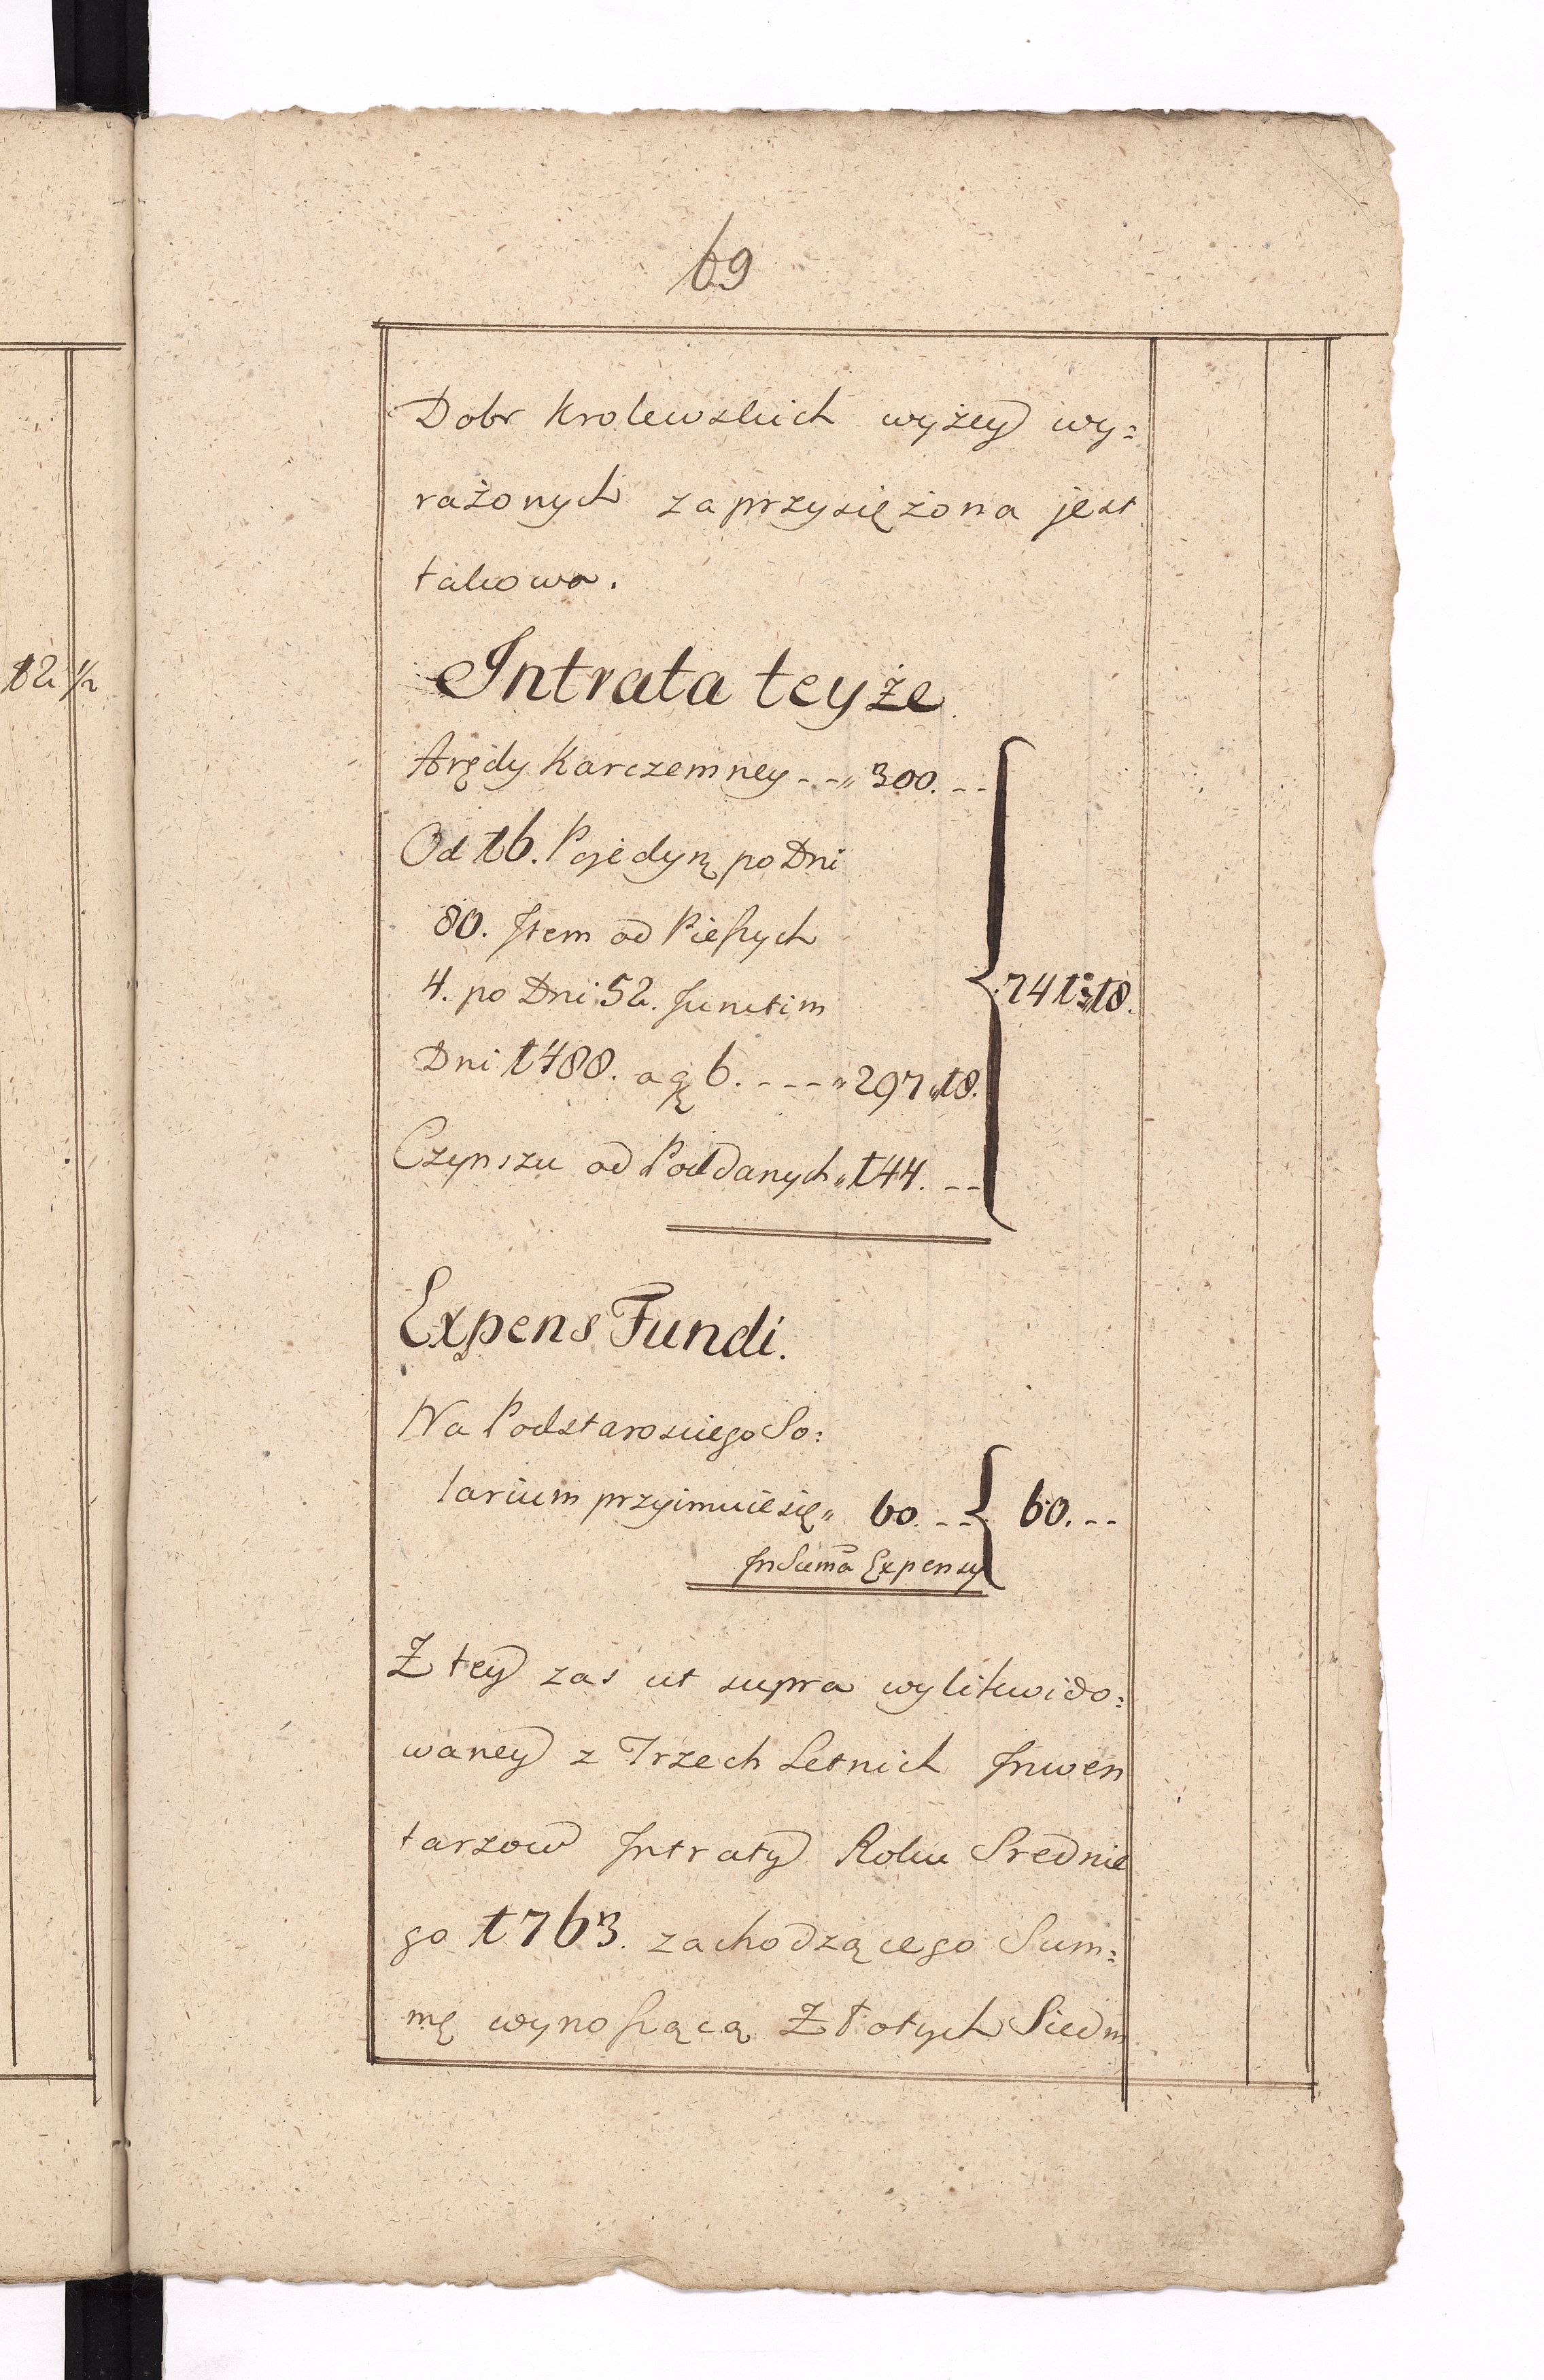 69
Dobr Krolewskich wyżey wy:
rażonych zaprzysiężona jest
takowa.
Intrata teyże
Arędy Karczemney - - „ 300. - -
Od 16. Pojedyną po Dni
80. Item od Pieszych
4. po Dni 52. Junctim
Dni 1488. a gą 6. - - - - „ 297 „ 18.
741 „ 18.
Czynszu od Poddanych „ 144. - -
Expens Fundi.
Na Podstarosciego So:
larium przyimuie się „ 60. - - 60. - -
In Suma Expensy
Z tey zas ut supra wylikwido:
waney z Trzech Letnich Inwen
tarzow Intraty Roku Srednie
go 1763. zachodzącego Sum:
mę wynoszącą Złotych Siedm
12 1/2